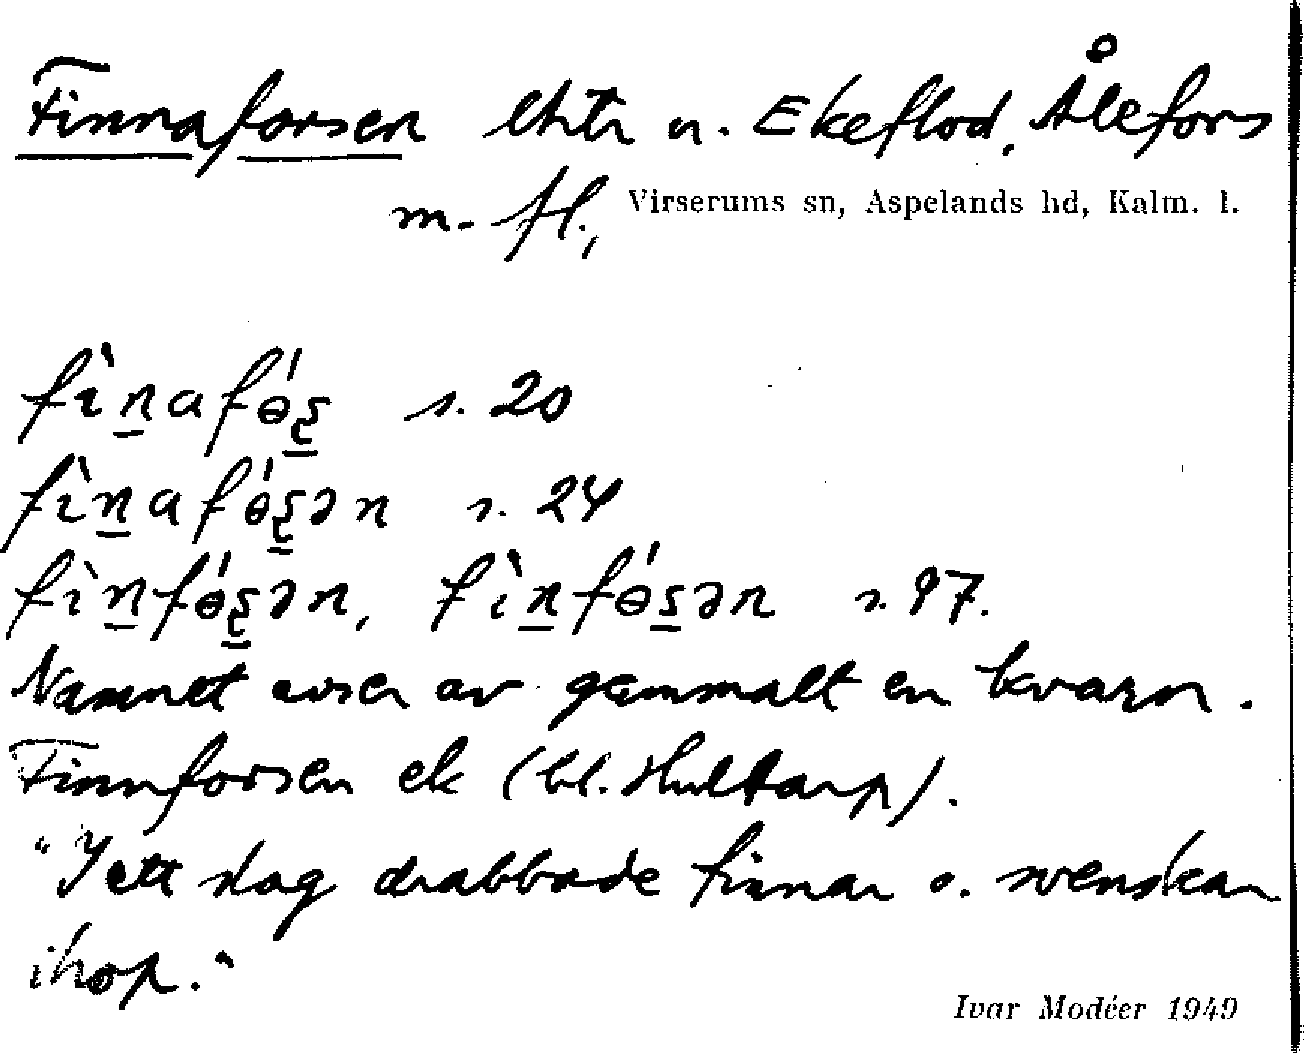 Finnaforsen lht u. Ekeflod, Ålefors
m. fl., Virserums sn, Aspelands hd, Kalm. l.
fìn̲afɵ́ʂ̲ s. 20
fìn̲afɵ́ʂ̲ən s. 24
fìn̲fɵ́ʂ̲ən, fìn̲fɵ́s̲ən s. 97.
Namnet avser av gammalt en kvarn.
Finnforsen ek (bl. Hultarp).
"I ett slag drabbade finnar o. svenskar
ihop."
Ivar Modéer 1949